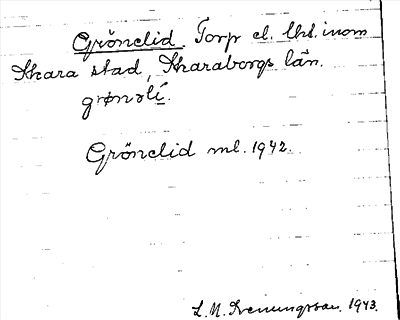 Grönelid. Torp el. lhs. inom
Skara stad, Skaraborgs län.
grønəlí.
Grönelid ml. 1942.
L. M. Svenungsson. 1943.